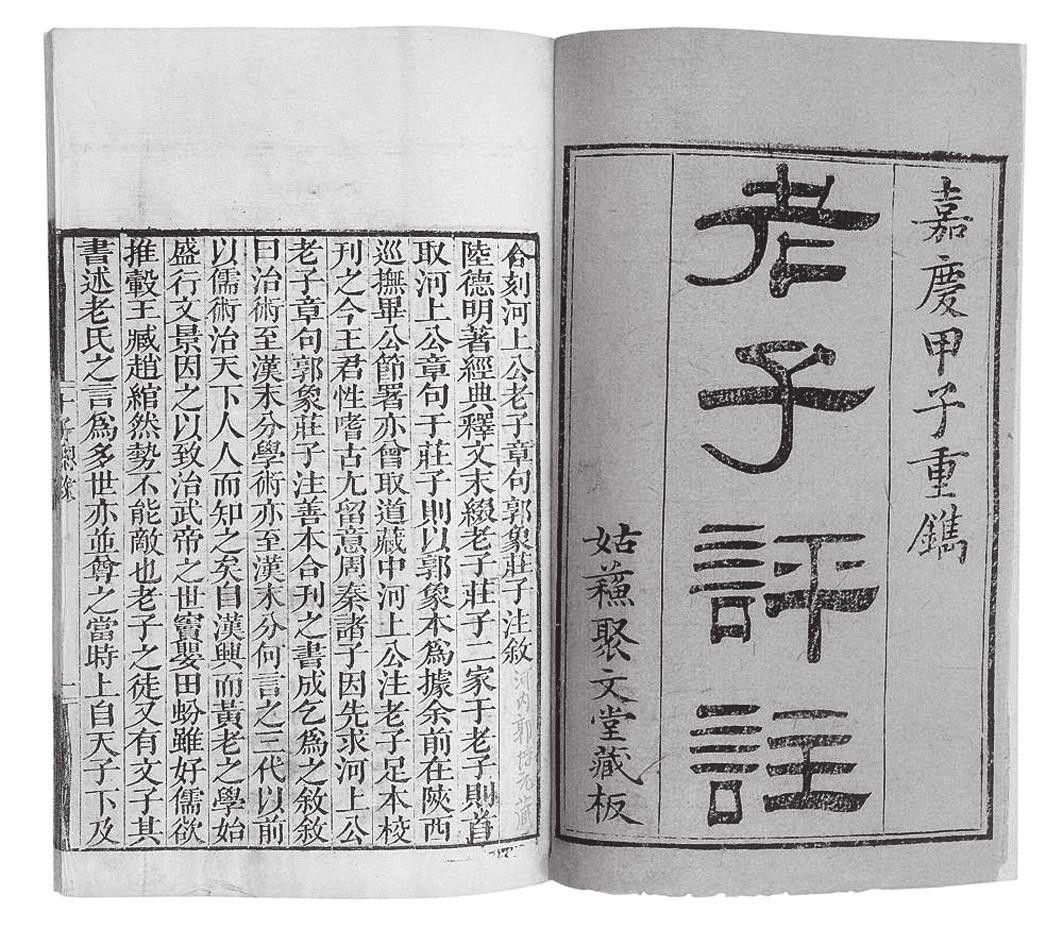 嘉慶甲子重鐫
老子評註
姑蘇聚文堂藏板
合刻河上公老子章句郭象莊子注敘
陸德明著經典釋文末綴老子莊子二家于老子則首
取河上公章句于莊子則以郭象本為據余前在陝西
巡撫畢公節署亦曾取道藏中河上公注老子足本校
刊之今王君性嗜古尢留意周秦諸子因先求河上公
老子章句郭象莊子注善本合刊之書成乞為之敘敘
曰治術至漢末分學術亦至漢末分何言之三代以前
以儒術治天下人人而知之矣自漢興而黃老之學始
盛行文景因之以致治武帝之世竇嬰田蚡雖好儒欲
推轂王臧趙綰然勢不能敵也老子之徒又有文子其
書述老氏之言為多世亦並尊之當時上自天子下及
十子總錄 一